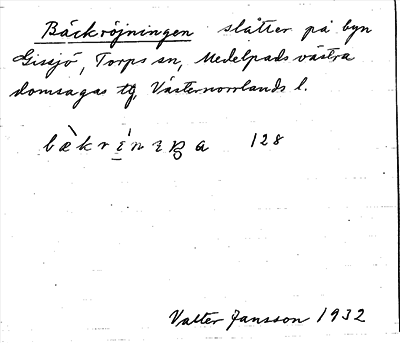 Bäckröjningen slåtter på byn
Gissjö, Torps sn, Medelpads västra
domsagas tg, Västernorrlands l.
128
Valter Jansson 1932